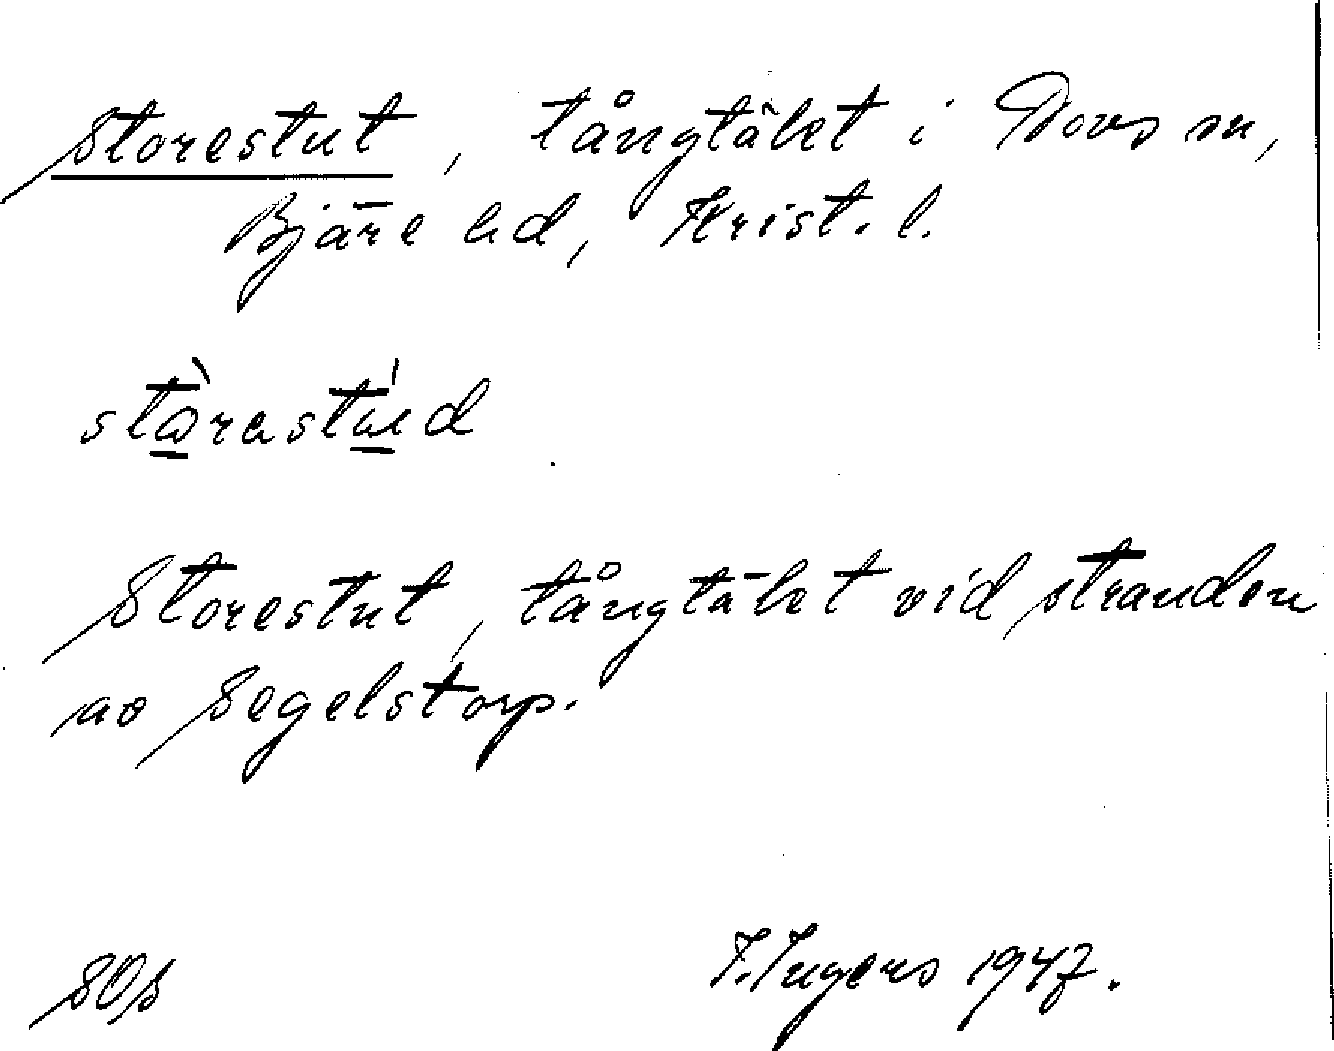 Storestut, tångtäkt i Hovs sn,
Bjäre hd, Krist. l.
Storestut, tångtäkt vid stranden
av Segelstorp.
SOS I. Ingers 1947.